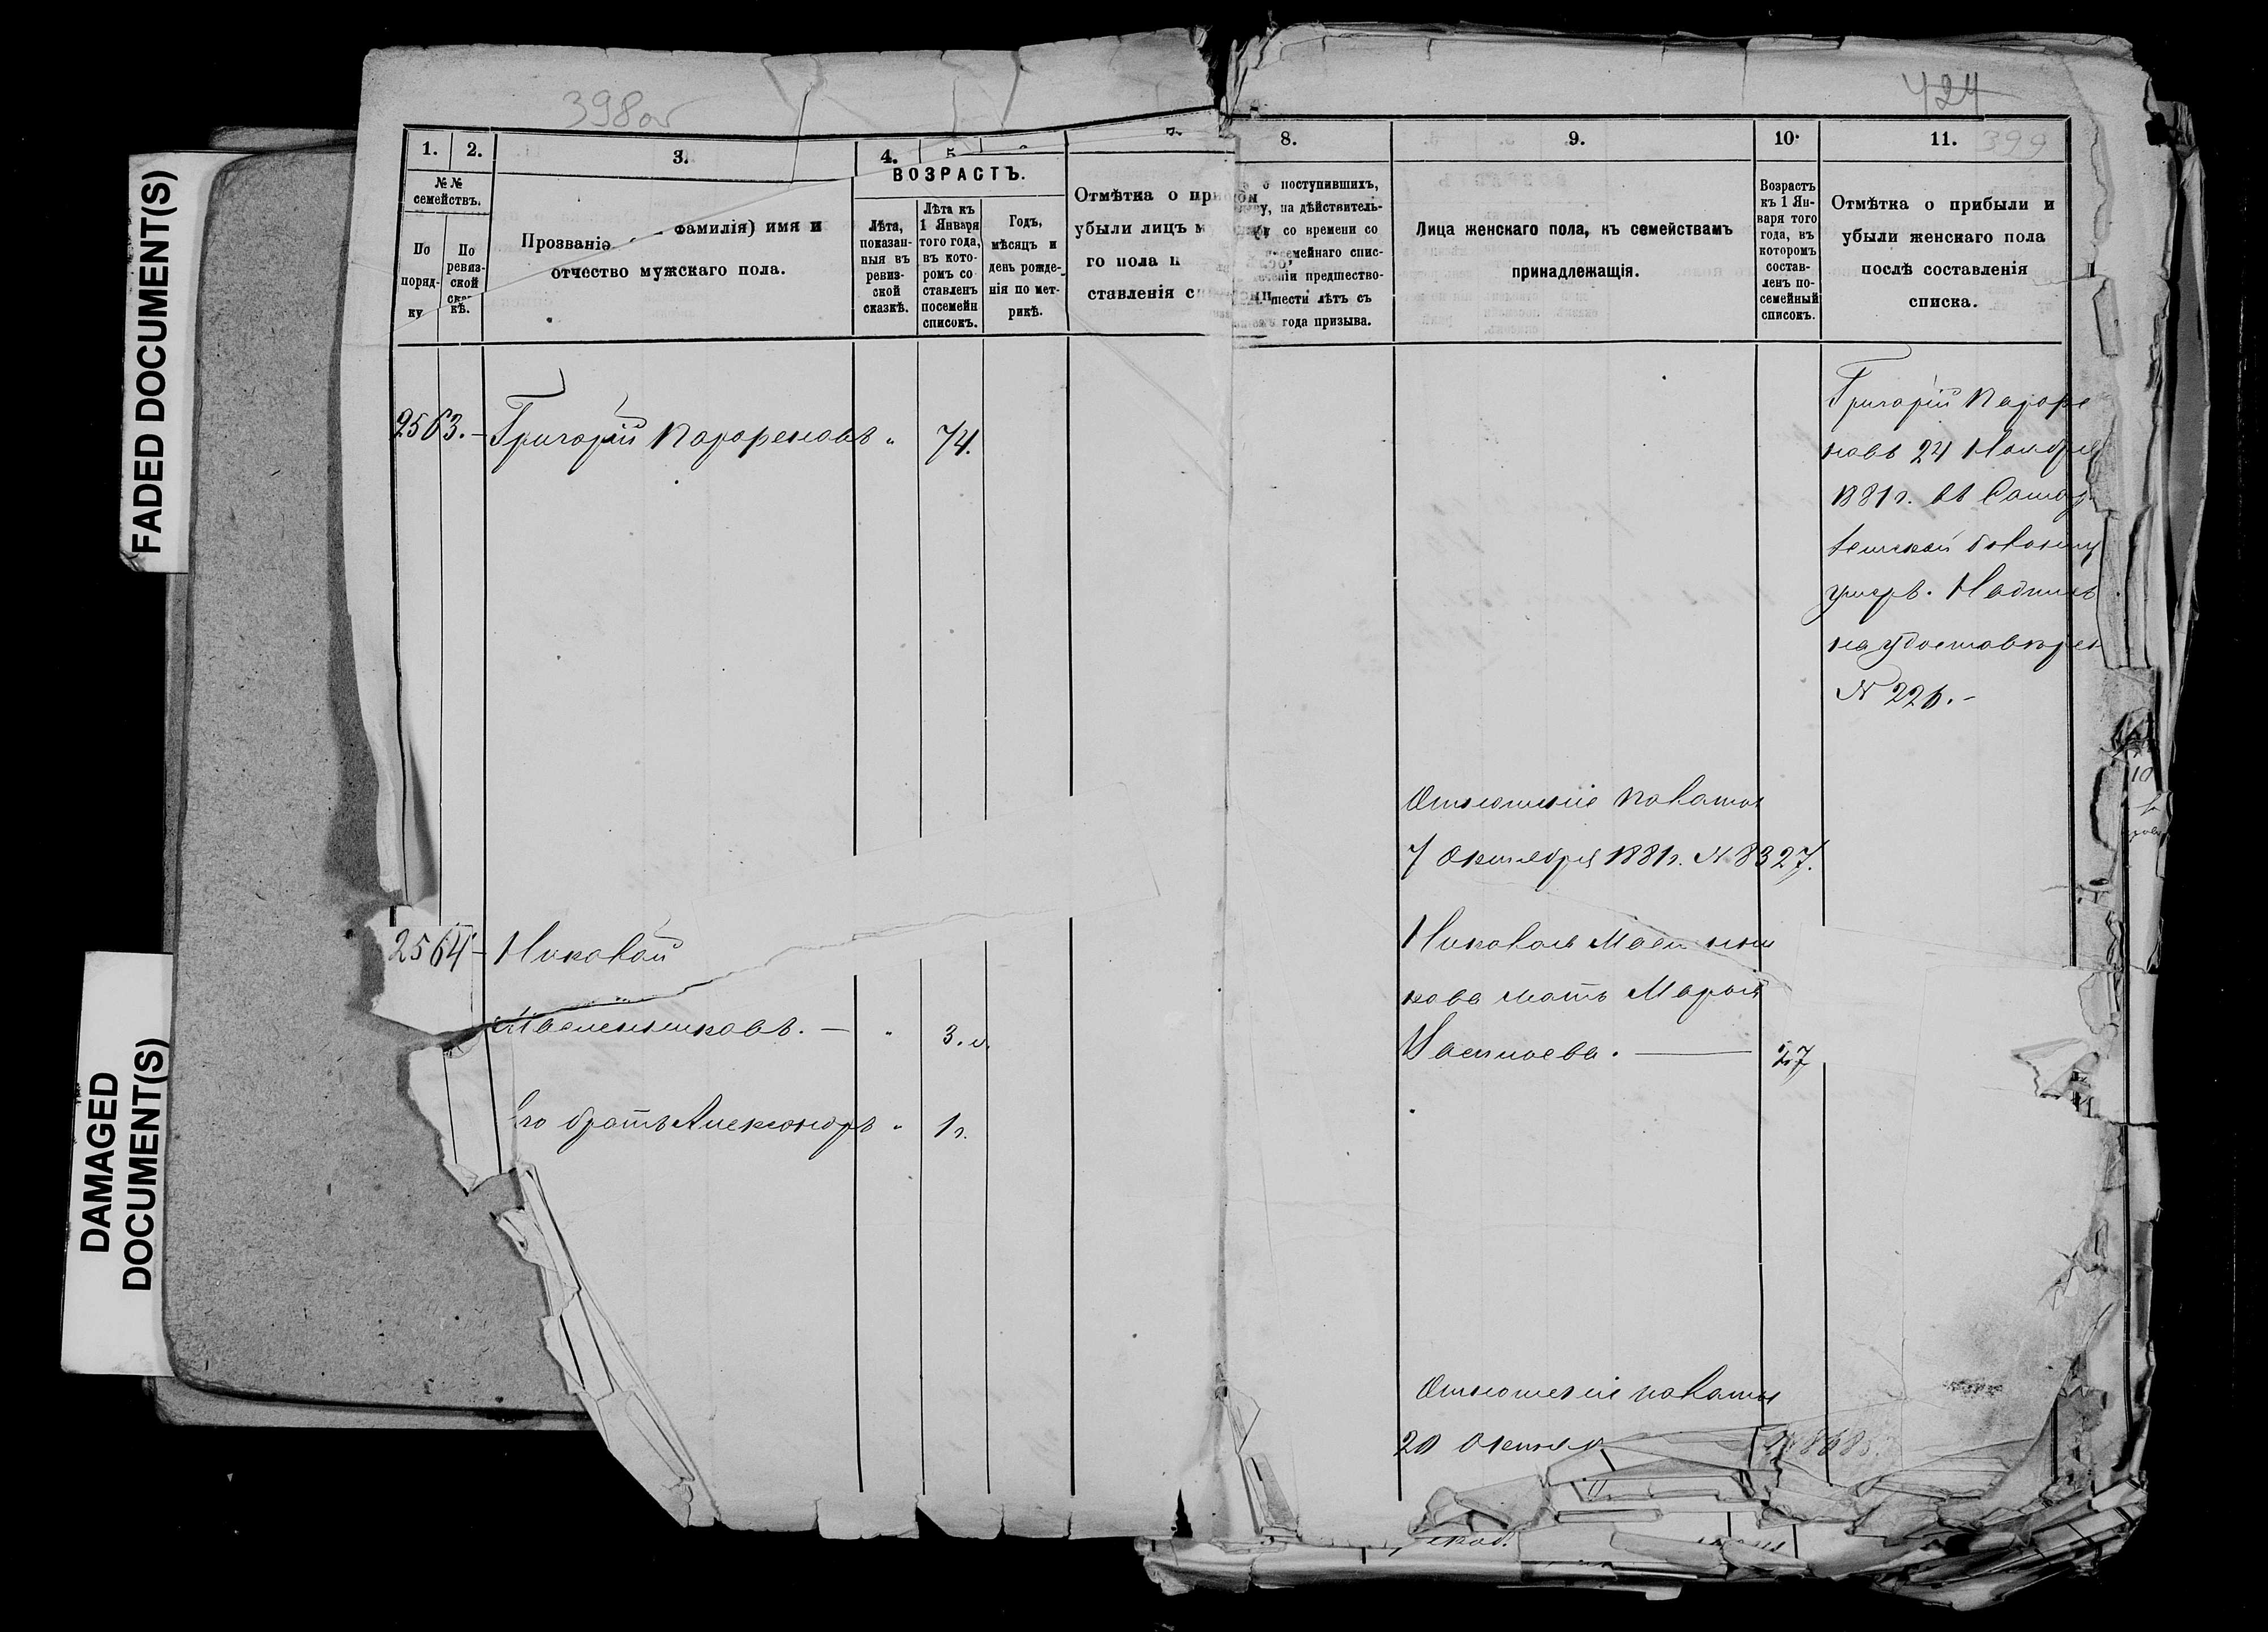 FADED DOCUMENT(S)
DAMAGED
DOCUMENT(S)
398об
424
399
1. 2. 3. 4. 5
№ №
семействъ.
По
поряд-
ку
По
ревиз-
ской
ска-
кѣ.
Прозваніе фамилія) имя и
отчество мужскаго пола.
ВОЗРАСТЪ.
Лѣта,
показан-
ныя въ
ревиз-
ской
сказкѣ.
Лѣта къ
1 Января
того года,
въ кото-
ромъ со
ставленъ
посемейн
списокъ.
Годъ,
мѣсяцъ и
день рожде-
нія по мет-
рикѣ.
Отмѣтка о при
убыли лицъ м
го пола п
ставленія с
8. 9. 10. 11.
о поступившихъ,
у, на дѣйствитель-
со времени со
семейнаго спис-
ніи предшество-
шести лѣтъ съ
года призыва.
Лица женскаго пола, къ семействамъ
принадлежащія.
Возрастъ
къ 1 Ян-
варя того
года, въ
которомъ
состав-
ленъ по-
семейный
списокъ.
Отмѣтка о прибыли и
убыли женскаго пола
послѣ составленія
списка.
2563. – Григорій Парфеновъ " 74.
Григорій Парфе
новъ 24 Ноября
1881 г. въ
умеръ. Надпись
на удостовѣрен
№ 226. –
Отношеніе палаты
7 Октября 1881 г. № 8327.
2564 – Николай
Масленниковъ. – " 3. л.
Его братъ Александръ " 1 г.
Николая Маслени
кова мать Марья
27
Отношеніе палаты
20 Октяб